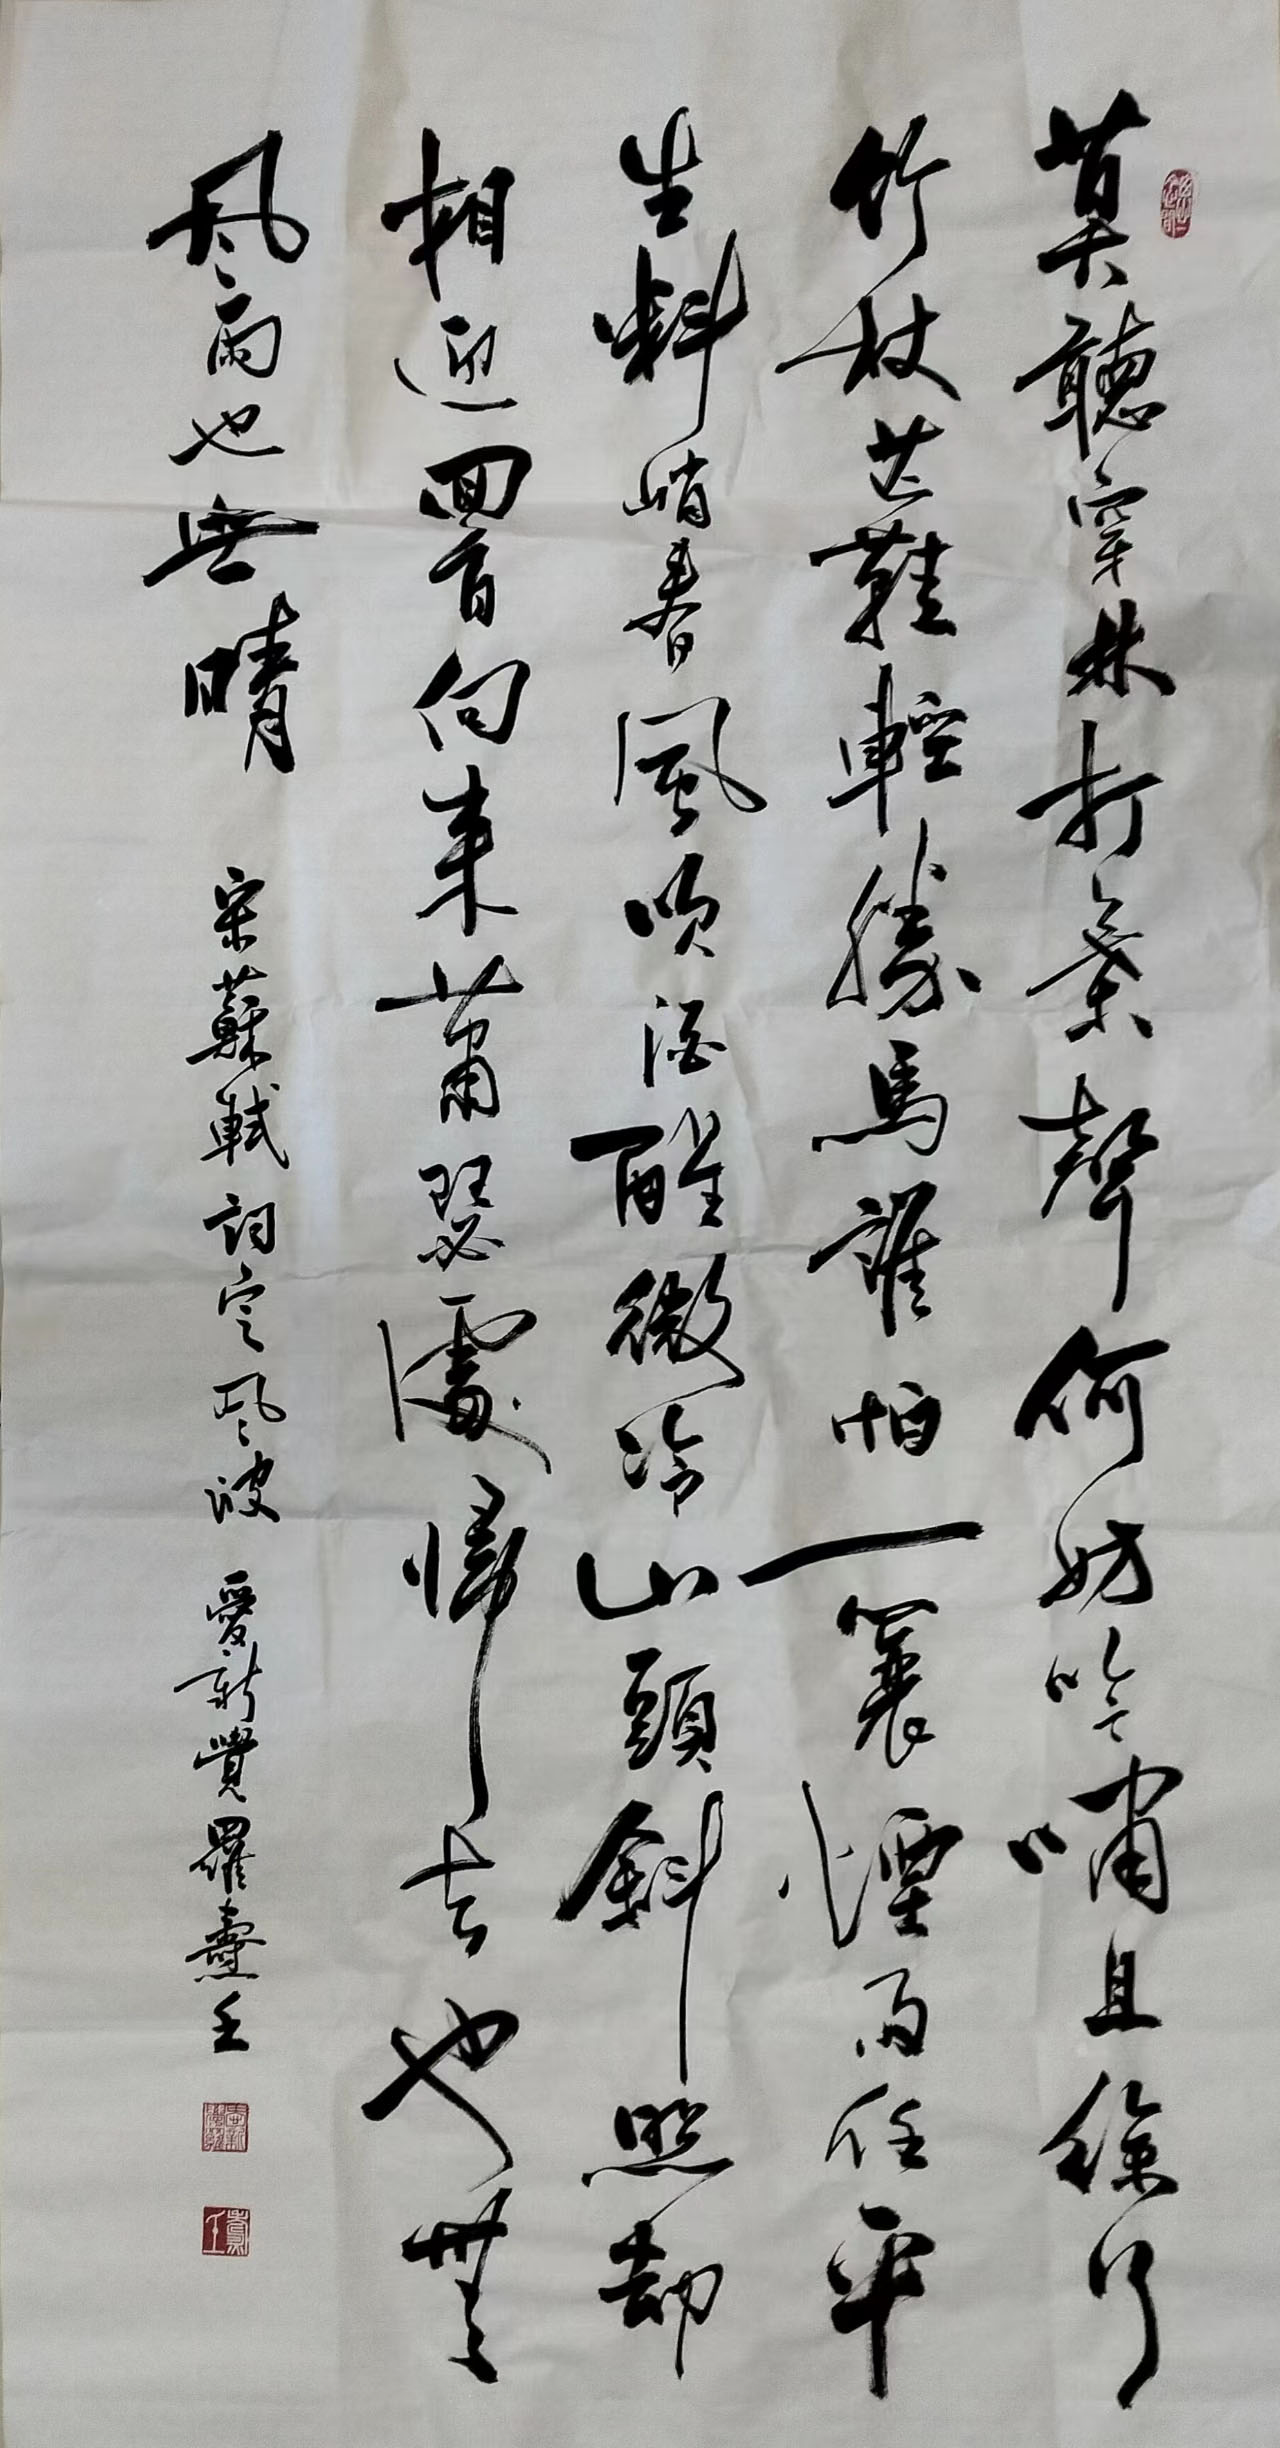 莫聽穿林打葉聲何妨吟嘯且徐行
竹杖芒鞋輕勝馬誰怕一蓑煙雨任平
生料峭春風吹酒醒微冷山頭斜照却
相迎回首向来蕭瑟處歸去也無
風雨也無晴
宋蘇軾詞定风波 愛新覺羅燾壬